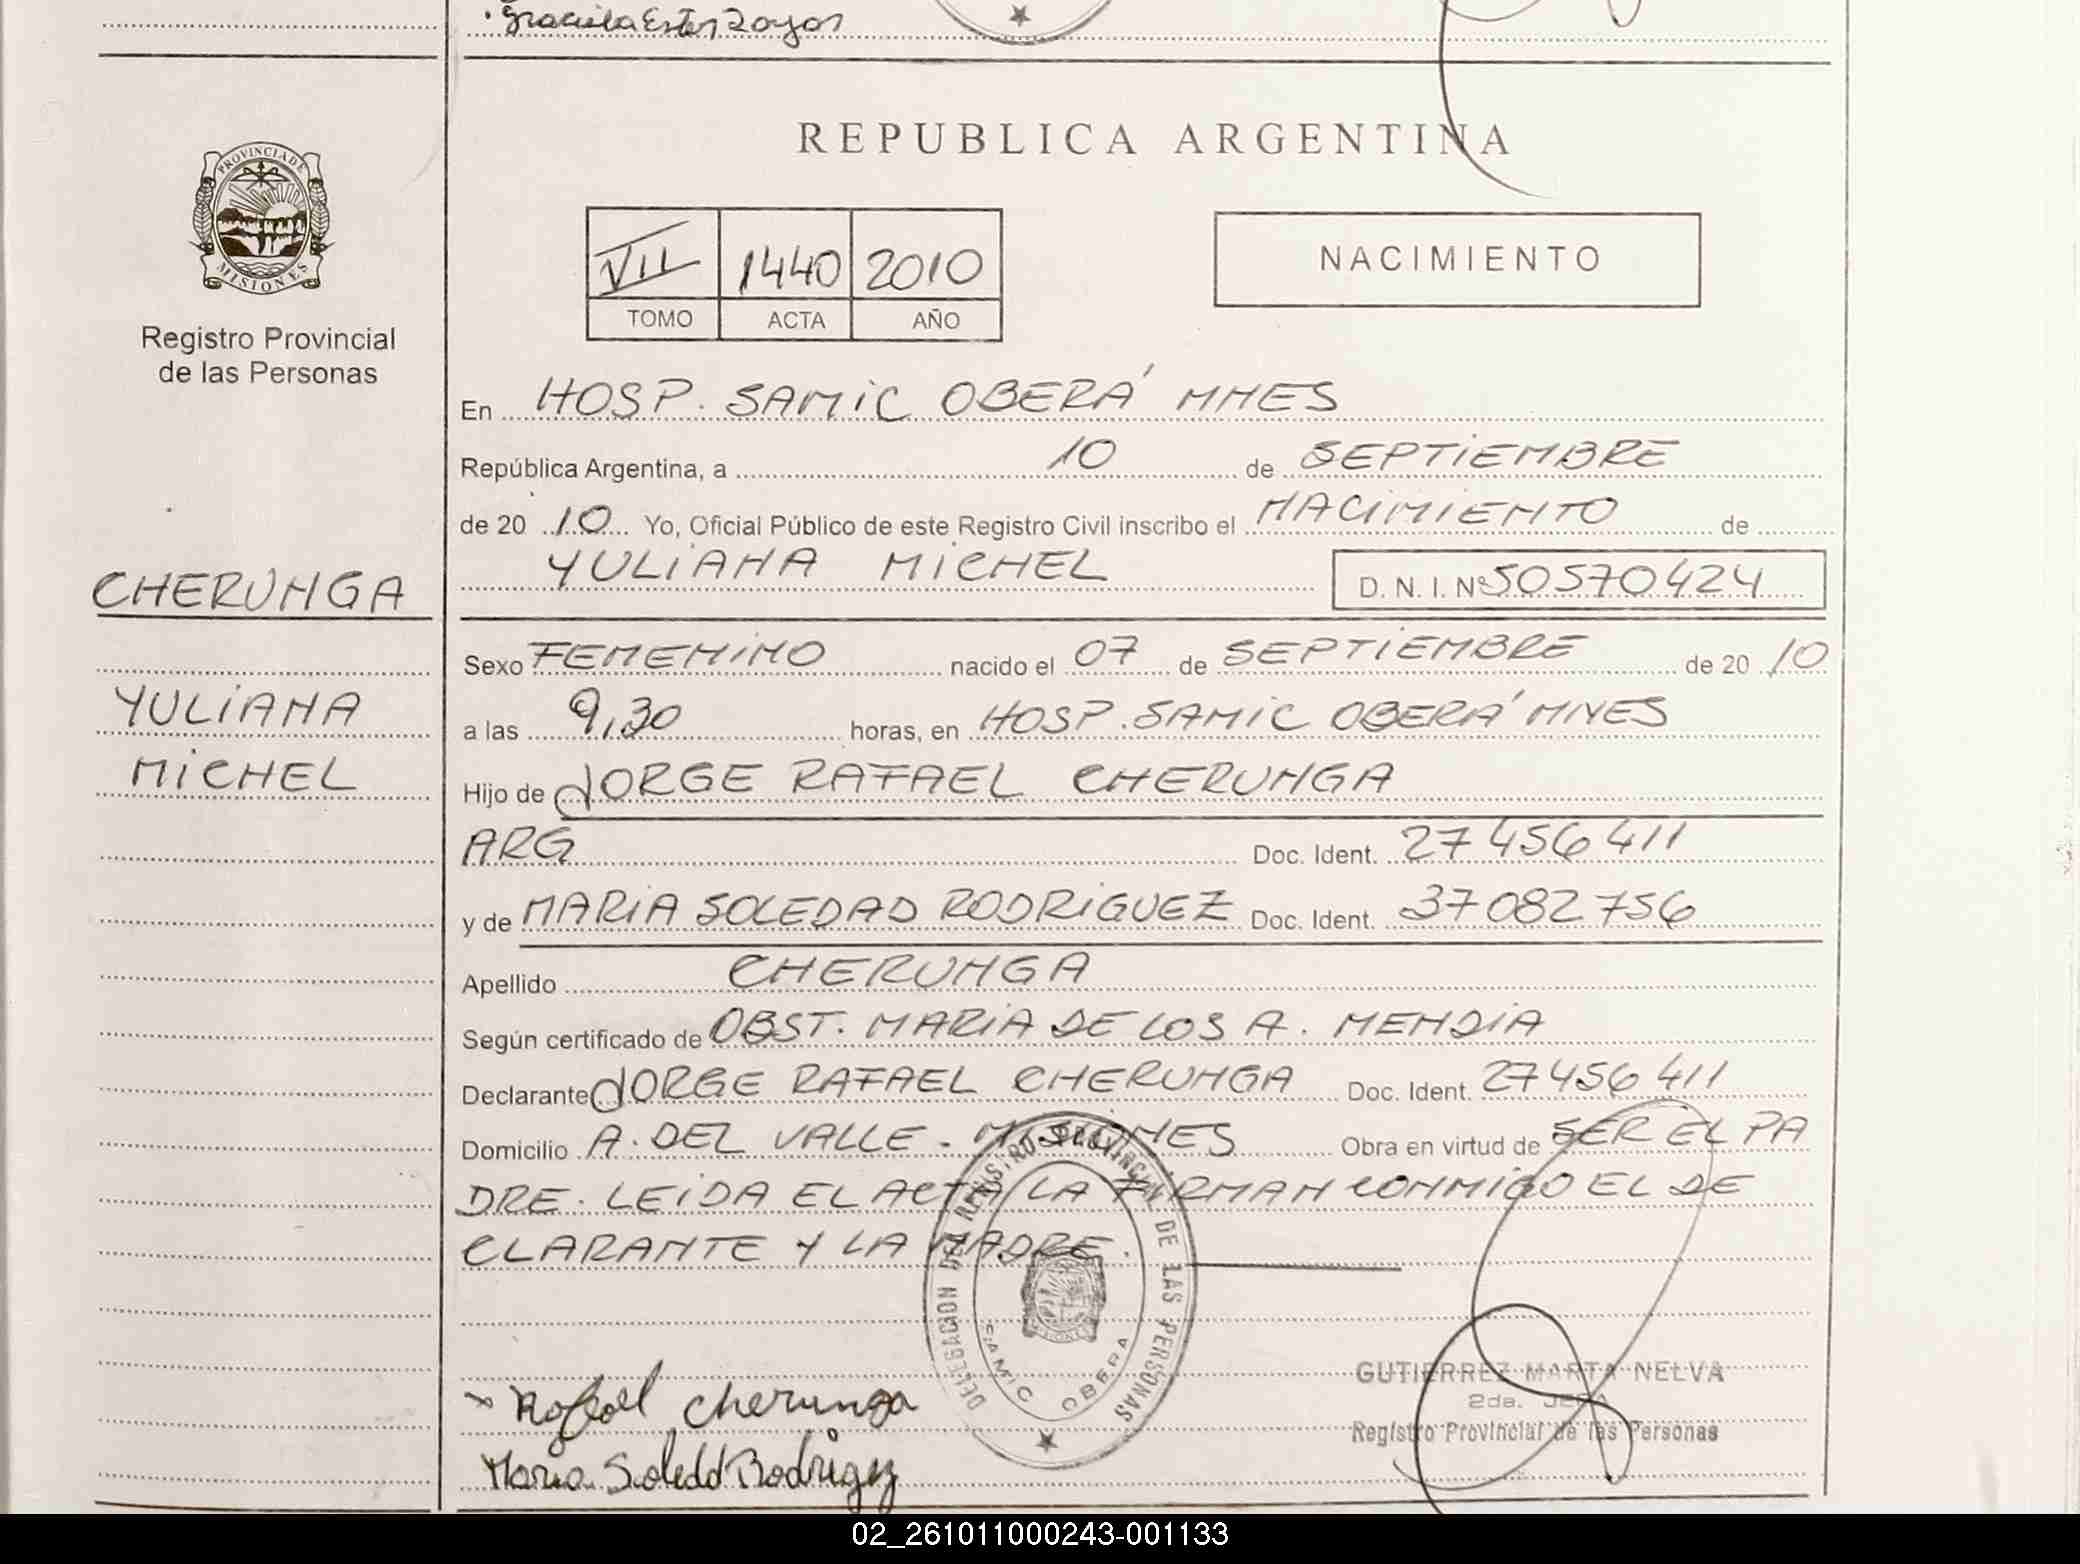 Graciela Ester Royor
REPUBLICA ARGENTINA
PROVINCIA DE
MISIONES
VII 1440 2010
TOMO ACTA AÑO
NACIMIENTO
Registro Provincial
de las Personas
CHERUNGA
YULIANA
MICHEL
En HOSP. SAMIC OBERÁ MNES
República Argentina, a 10 de SEPTIEMBRE
de 20 10 Yo, Oficial Público de este Registro Civil inscribo el NACIMIENTO de
YULIANA MICHEL D. N. I. Nº 50570424
Sexo FEMENINO nacido el 07 de SEPTIEMBRE de 20 10
a las 9,30 horas, en HOSP. SAMIC OBERÁ MNES
Hijo de JORGE RAFAEL CHERUNGA
ARG Doc. Ident. 27456411
y de MARIA SOLEDAD RODRIGUEZ Doc. Ident. 37082756
Apellido CHERUNGA
Según certificado de OBST. MARIA DE LOS A. MENDIA
Declarante JORGE RAFAEL CHERUNGA Doc. Ident. 27456411
Domicilio A. DEL VALLE - MISIONES Obra en virtud de SER EL PA
DRE. LEIDA EL ACTA LA FIRMAN CONMIGO EL DE
CLARANTE Y LA MADRE.
DELEGACION DEL REGISTRO PROVINCIAL DE LAS PERSONAS
MISIONES
SAMIC OBERA
Rafael Cherunga
Maria Soledd Rodrigez
GUTIERREZ MARTA NELVA
2da. JEFA
Registro Provincial de las Personas
02_261011000243-001133